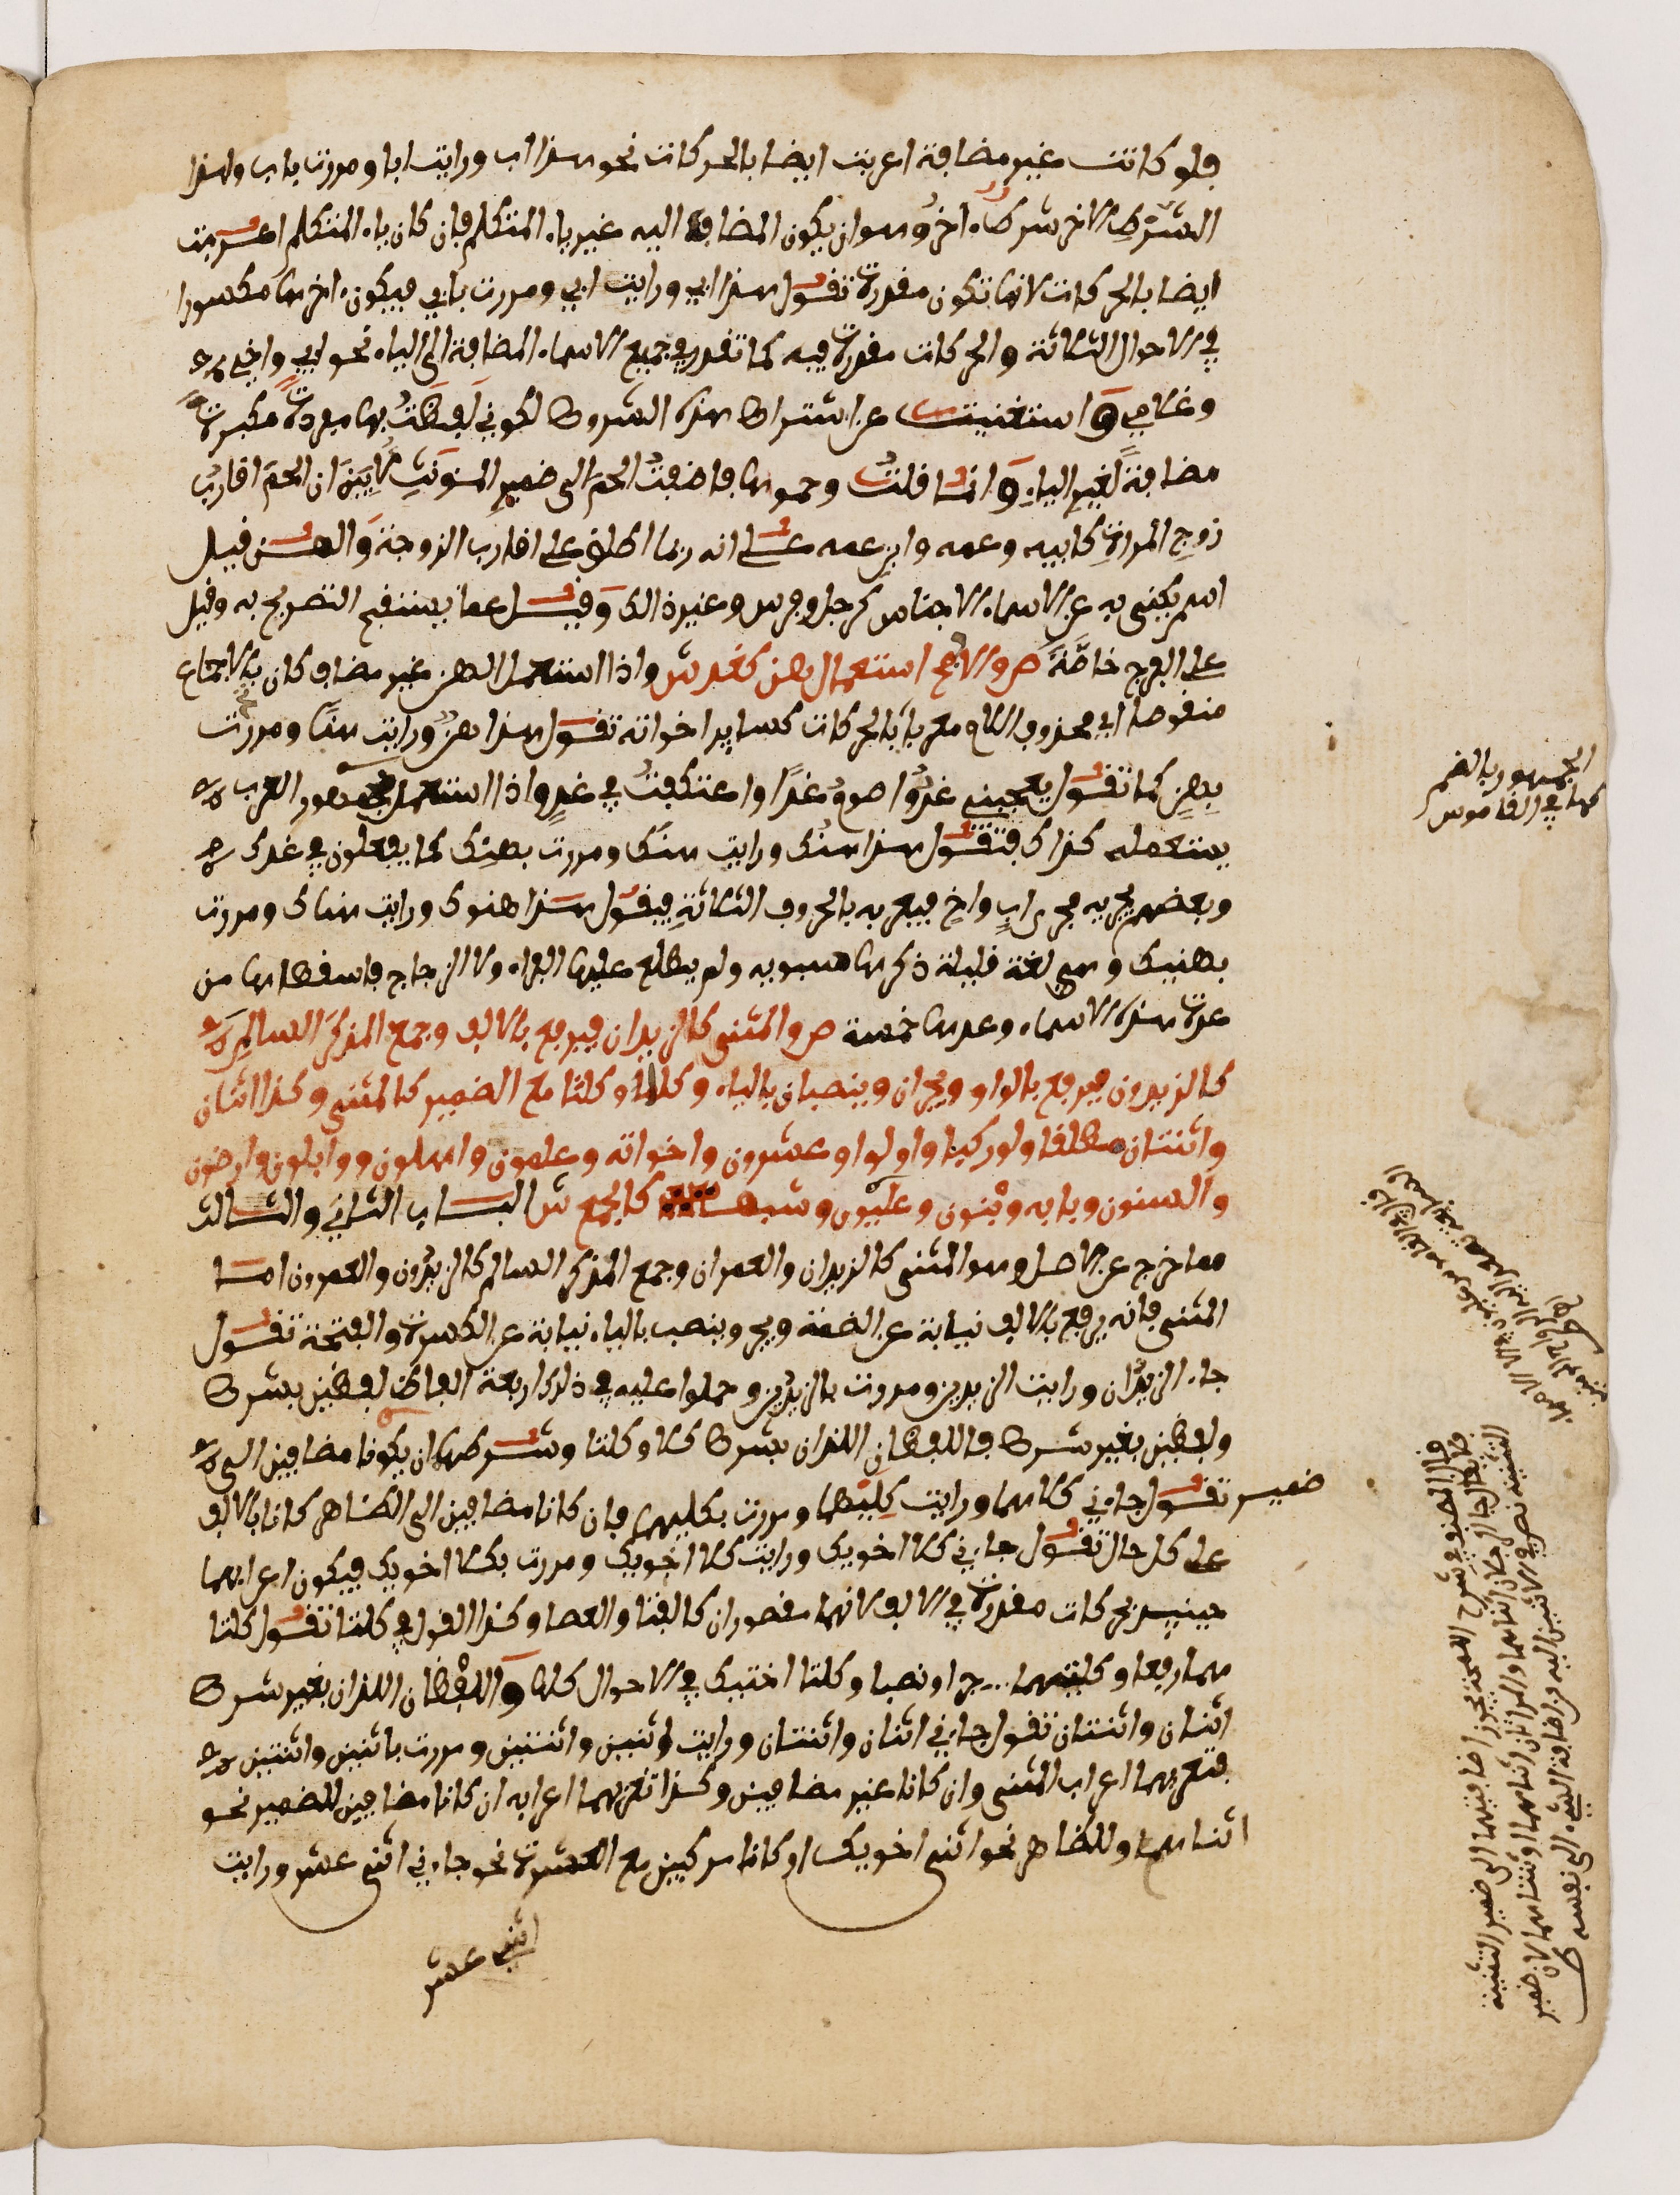 فلو كانت غير مضافة اعربت ايضا بالحركات نحو هذا اب ورايت ابا ومررت باب ولهذا
الشرط الاخر شرط اخر وهو ان يكون المضاف اليه غير ياء المتكلم فان كان ياء المتكلم اعربت
ايضا بالحركات لانها تكون مقدرة تقول هذا ابي ورايت ابي ومررت بابي فيكون اخرها مكسورا
في الاحوال الثلاثة والحركات مقدرة فيه كما تقدر في جميع الاسماء المضافة الى الياء نحو ابي واخي
وغلامي و استغنيت عن اشتراط هذه الشروط لكوني لفظت بها مفردة مكبرة
مضافة لغير الياء و انما قلت وحموها فاضفت الحم الى ضمير المونث لابين ان الحم اقارب
زوج المراة كابيه وعمه وابن عمه على انه ربما اطلق على اقارب الزوجة والهن قيل
اسم يكنى به عن الاسماء الاجناس كرجل وفرس وغير ذالك وقيل عما يستقبح التصريح به وقيل
على الفرج خاصة ص والافصح استعمال هن كغد ش واذا استعمل الهن غير مضاف كان بالاجماع
منقوصا اي محذوف اللام معربا بالحركات كساير اخواته تقول هذا هن ورايت هنا ومررت
بهن كما تقول يعجبني غد واصوم غدا واعتكفت في غد واذا استعمل فجمهور العرب
يستعمله كذاك فتقول هذا هنك ورايت هنك ومررت بهنك كما يفعلون في غدك
وبعضهم يجريه مجرى اب واخ فيعربه بالحروف الثلاثة فيقول هذا هنوك ورايت هناك ومررت
بهنيك وهي لغة قليلة ذكرها سيبويه ولم يطلع عليها الفراء ولا الزجاج فاسقطاها من
عدة هذه الاسماء وعدها خمسة ص والمثنى كالزيدان فيرفع بالالف وجمع المذكر السالم
كالزيدون فيرفع بالواو ويجران وينصبان بالياء وكلا وكلتا مع الضمير كالمثنى وكذا اثنان
واثنتان مطلقا ولو ركبا واولوا وعشرون واخواته وعلمون واهلون ووابلون وارضون
والسنون وبابه وبنون وعليون وشبهه كالجمع ش الباب الثاني والثالث
مما خرج عن الاصل وهو المثنى كالزيدان والعمران وجمع المذكر السالم كالزيدون والعمرون اما
المثنى فانه يرفع بالالف نيابة عن الضمة ويجر وينصب بالياء نيابة عن الكسرة والفتحة تقول
جاء الزيدان ورايت الزيدين ومررت بالزيدين وحملوا عليه في ذلك اربعة الفاظ لفظين بشرط
ولفظين بغير شرط فاللفظان اللذان بشرط كلا وكلتا وشرطهما ان يكونا مضافين الى
ضمير تقول جاءني كلاهما ورايت كليهما ومررت بكليهما فان كانا مضافين الى الظاهر كانا بالالف
على كل حال تقول جاءني كلا اخويك ورايت كلا اخويك ومررت بكلا اخويك فيكون اعرابهما
حينيذ بحركات مقدرة في الالف لانهما مقصوران كالفتا والعصا وكذا القول في كلتا تقول كلتا
هما رفعا وكلتيهما جرا ونصبا وكلتا اختيك في الاحوال كلها و اللفظان اللذان بغير شرط
اثنان واثنتان تقول جاءني اثنان واثنتان ورايت اثنين واثنتين ومررت باثنين واثنتين
فتعربهما اعراب المثنى وان كانا غير مضافين وكذا تعربهما اعرابه ان كانا مضافين للضمير نحو
اثناهما وللظاهر نحو اثني اخويك او كانا مركبين مع العشرة نحو جاءني اثني عشر ورايت
اثني عشر
الجمهور بالضم
كما في القاموس
قال المصنف في شرح اللمحة يجوز اضافتهما الى ضمير التثنية
فلا يقال جاء الرجلان اثناهما والمراتان اثنتاهما لان ضمير
التثنية نص في الاثنين اليه من اضافة الشيء الى نفسه